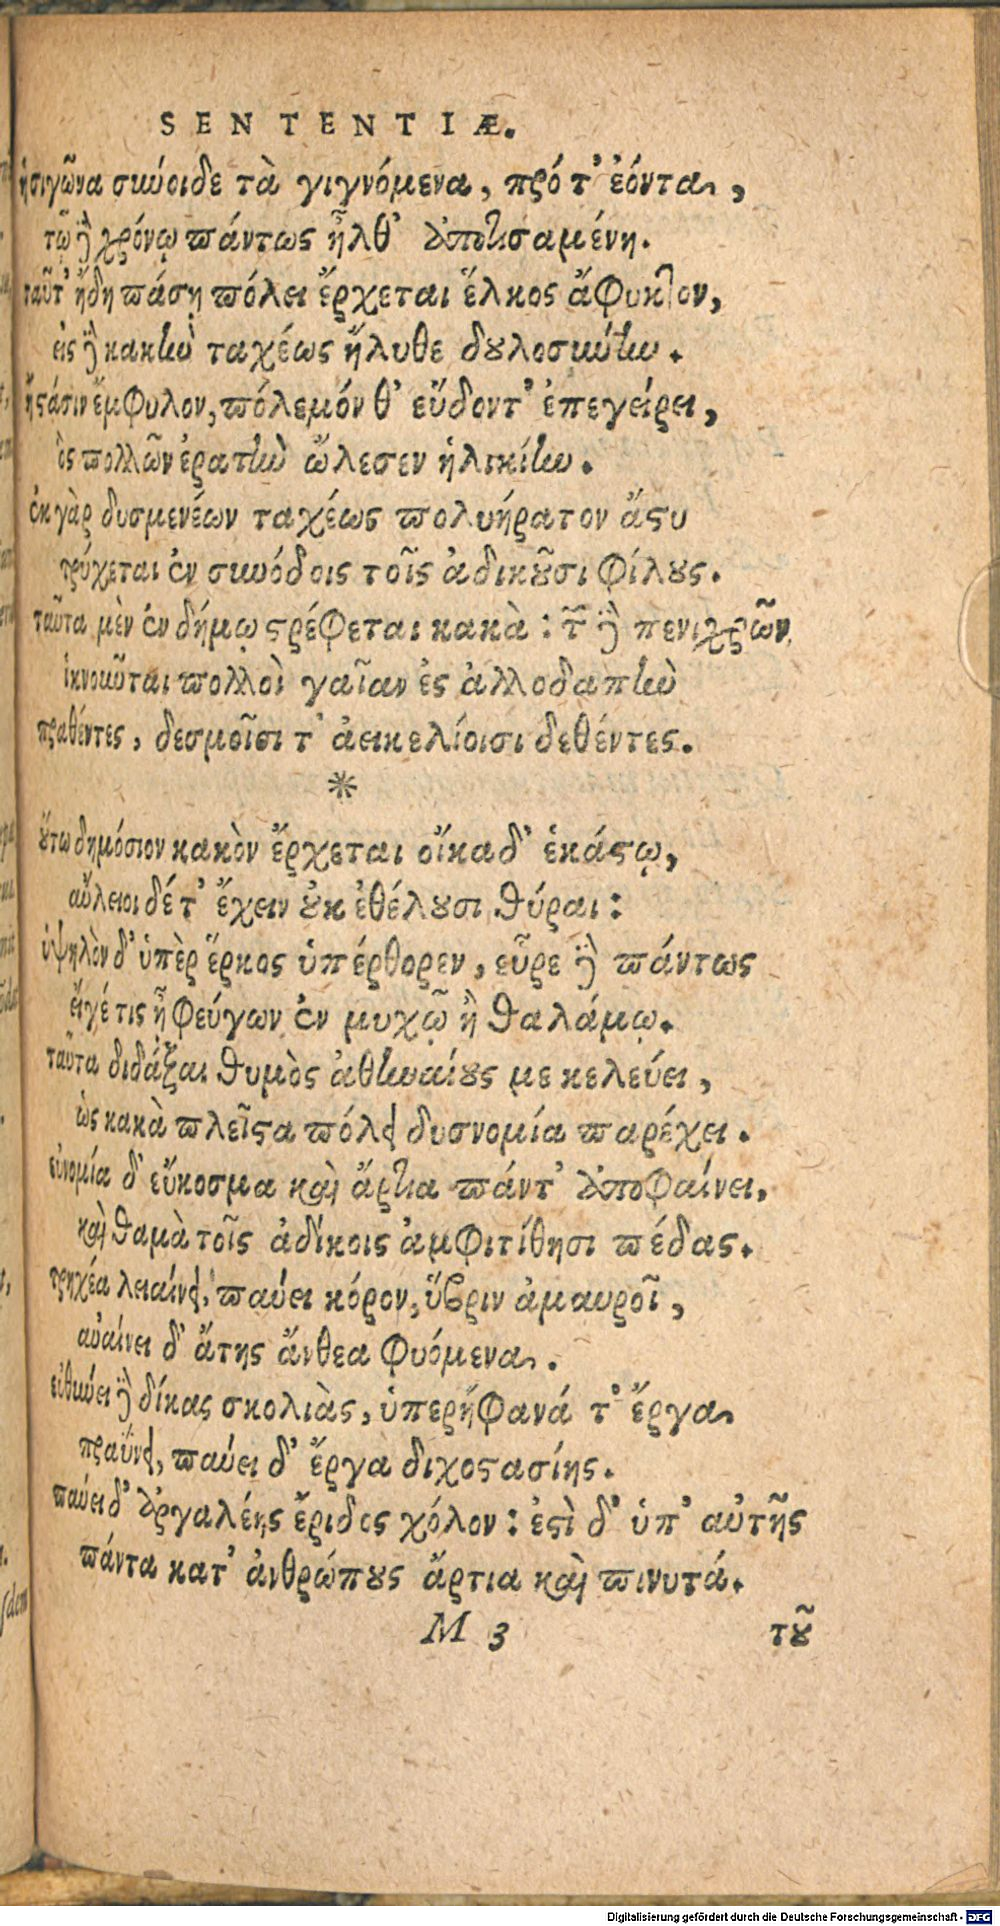 SENTENTIÆ.
ἡ σιγῶνα σιύοιδε τὰ γιγνόμενα, πρό τ' ἐόντα,
τῷ δὲ χρόνῳ πάντως ἦλθ' ἀποτισαμένη.
ταῦτ' ἤδη πάσῃ πόλει ἔρχεται ἕλκος ἄφυκτον,
εἰς δὲ κακὴν ταχέως ἤλυθε δουλοσύνην.
ἣ στάσιν ἔμφυλον, πόλεμόν θ' εὕδοντ' ἐπεγείρει,
ὃς πολλῶν ἐρατὴν ὤλεσεν ἡλικίην.
ἐκ γὰρ δυσμενέων ταχέως πολυήρατον ἄστυ
τρύχεται ἐν συνόδοις τοῖς ἀδικοῦσι φίλους.
ταῦτα μὲν ἐν δήμῳ στρέφεται κακὰ: τῶν δὲ πενιχρῶν
ἱκνοῦνται πολλοὶ γαῖαν ἐς ἀλλοδαπὴν
πραθέντες, δεσμοῖσι τ' ἀεικελίοισι δεθέντες.
*
οὕτω δημόσιον κακὸν ἔρχεται οἴκαδ' ἑκάστῳ,
αὔλειοι δέ τ' ἔχειν οὐκ ἐθέλουσι θύραι:
ὑψηλὸν δ' ὑπὲρ ἕρκος ὑπέρθορεν, εὗρε δὲ πάντως
εἴ γέ τις ἦ φεύγων ἐν μυχῷ ἢ θαλάμῳ.
ταῦτα διδάξαι θυμὸς ἀθηναίους με κελεύει,
ὡς κακὰ πλεῖστα πόλει δυσνομία παρέχει.
εὐνομία δ' εὔκοσμα καὶ ἄρτια πάντ' ἀποφαίνει,
καὶ θαμὰ τοῖς ἀδίκοις ἀμφιτίθησι πέδας.
τρηχέα λειαίνει, παύει κόρον, ὕβριν ἀμαυροῖ,
αὐαίνει δ' ἄτης ἄνθεα φυόμενα.
εὐθύνει δὲ δίκας σκολιὰς, ὑπερήφανά τ' ἔργα
πραΰνει, παύει δ' ἔργα διχοστασίης.
παύει δ' ἀργαλέης ἔριδος χόλον: ἐστὶ δ' ὑπ' αὐτῆς
πάντα κατ' ἀνθρώπους ἄρτια καὶ πινυτά.
M 3 τοῦ
Digitalisierung gefördert durch die Deutsche Forschungsgemeinschaft - DFG